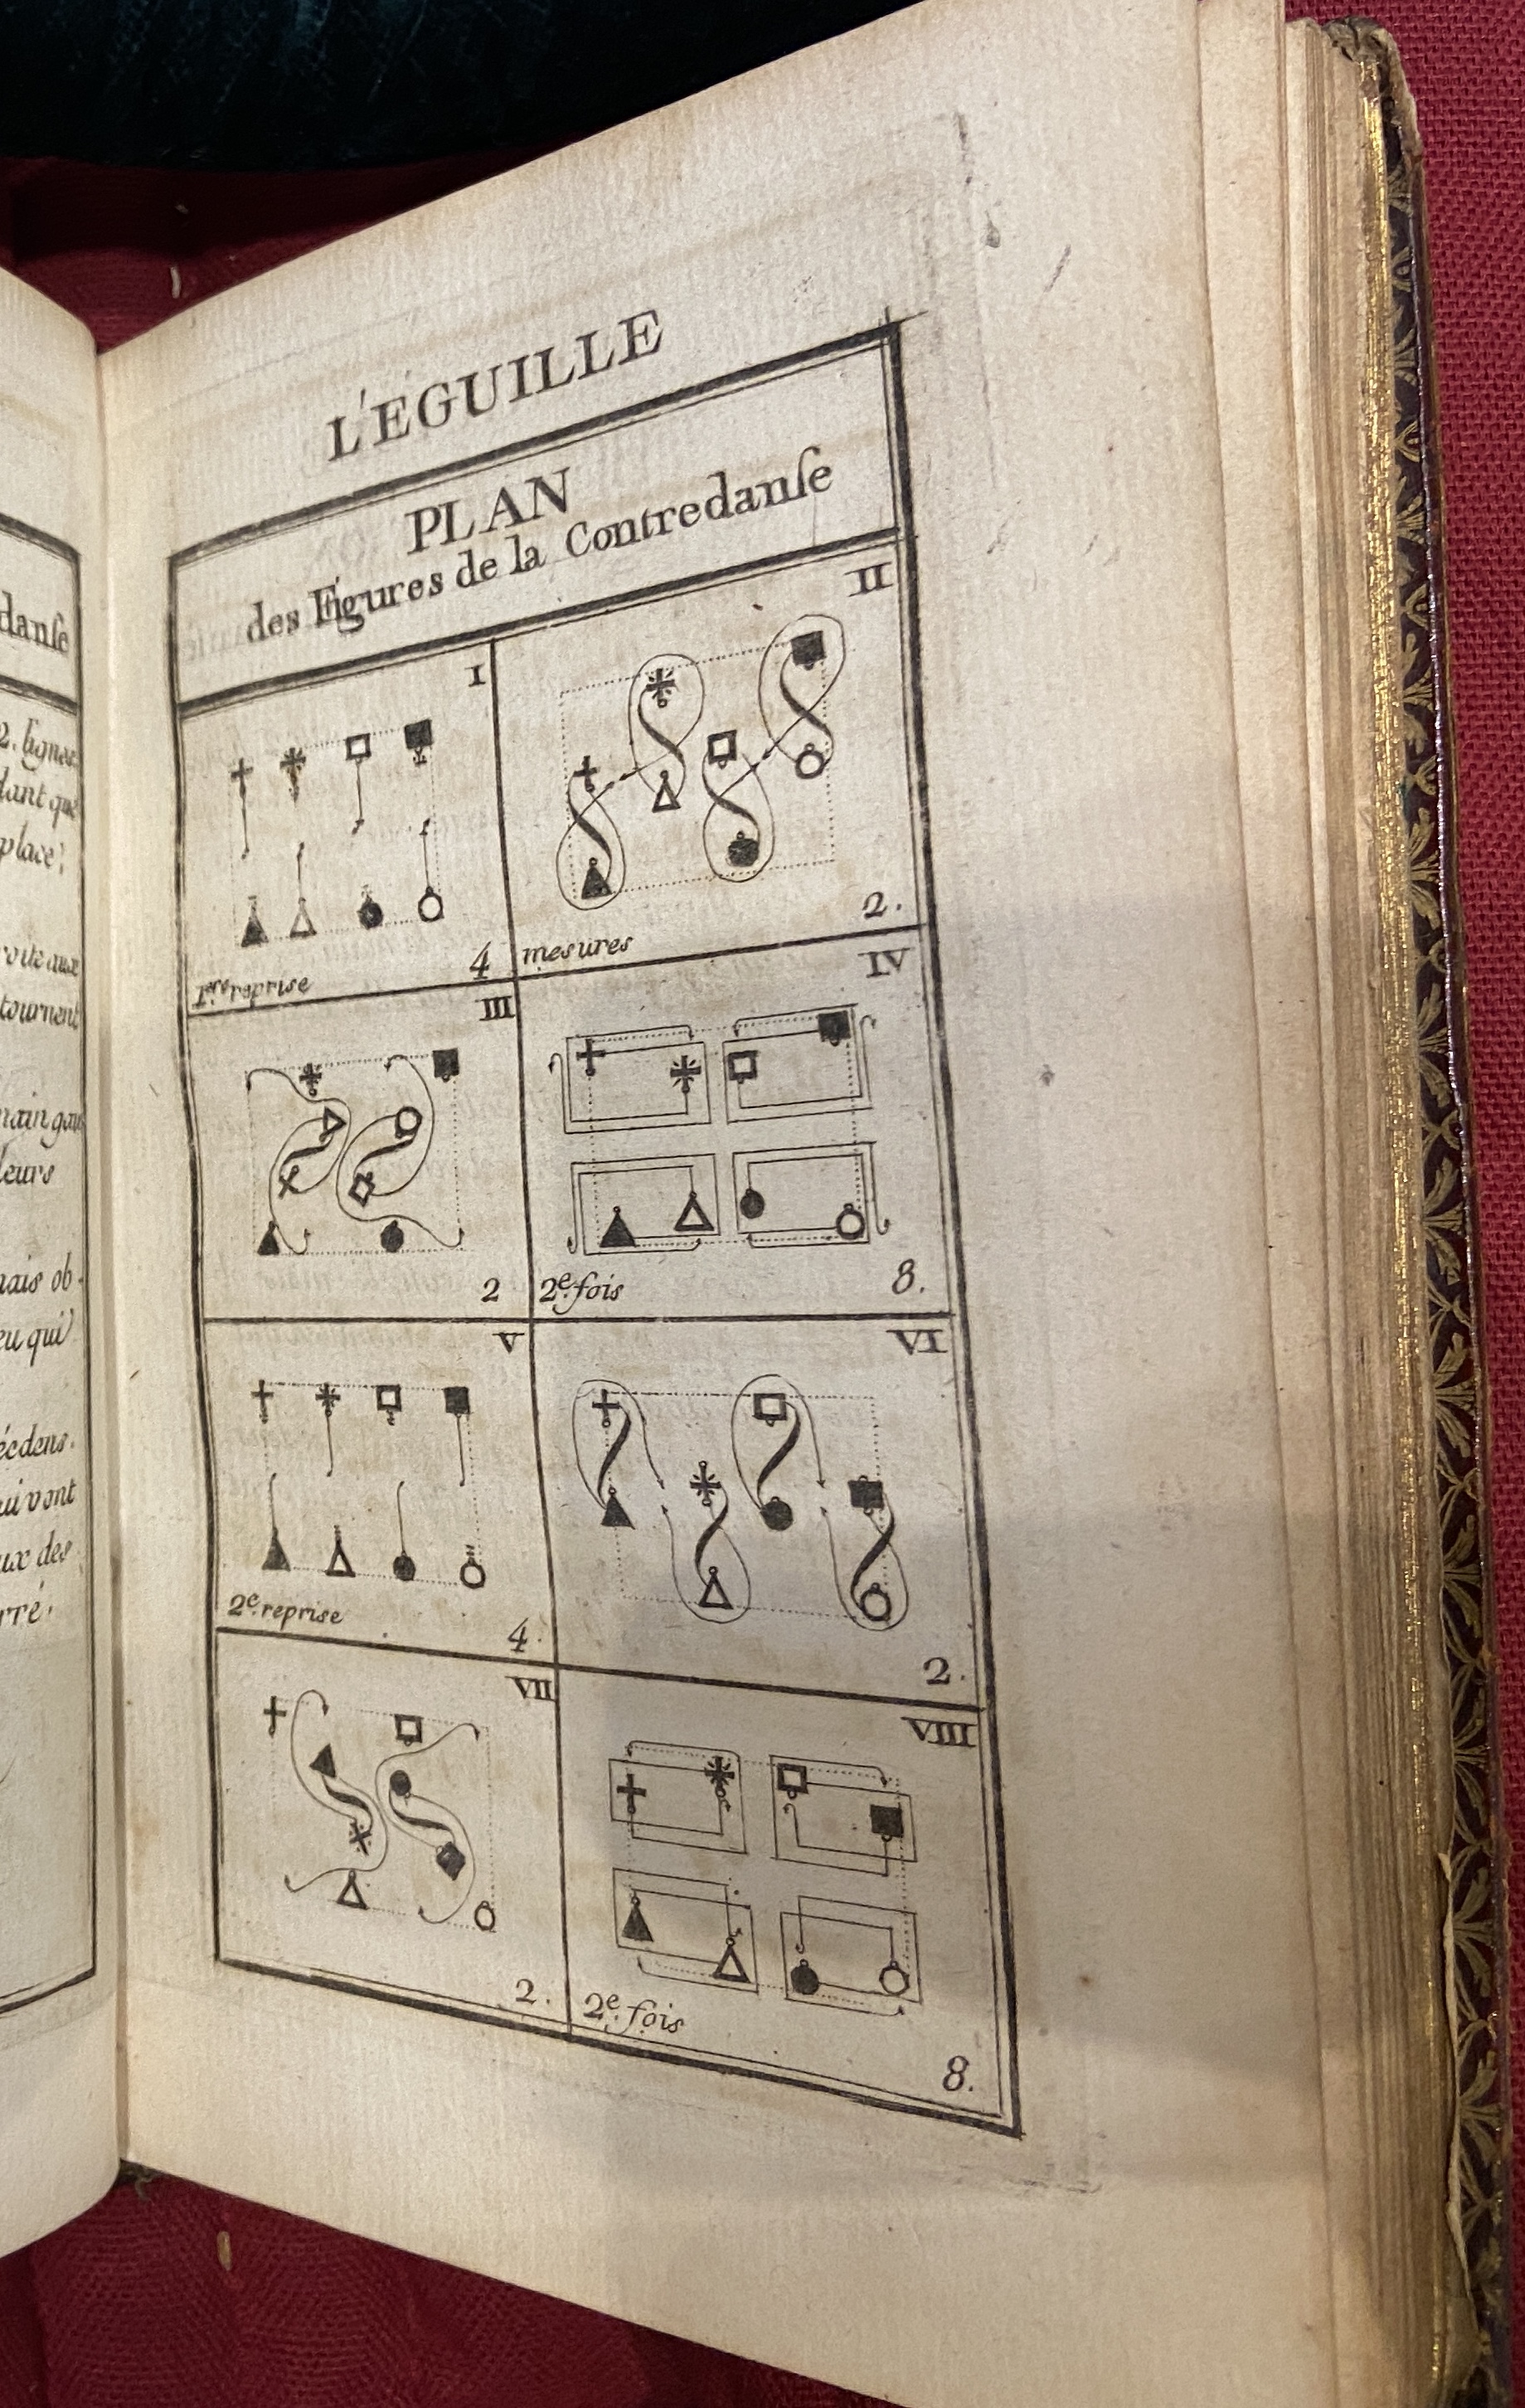 danſe
2. lignes
dant que
place;
tournent
leurs
mais ob-
eu qui
écdens.
ui vont
ux des
rré.
L'EGUILLE
PLAN
des Figures de la Contredanſe
I
1ere reprise
4
II
mesures
2.
III
2
IV
2e. fois
8.
V
2e. reprise
4.
VI
2.
VII
2.
VIII
2e. fois
8.